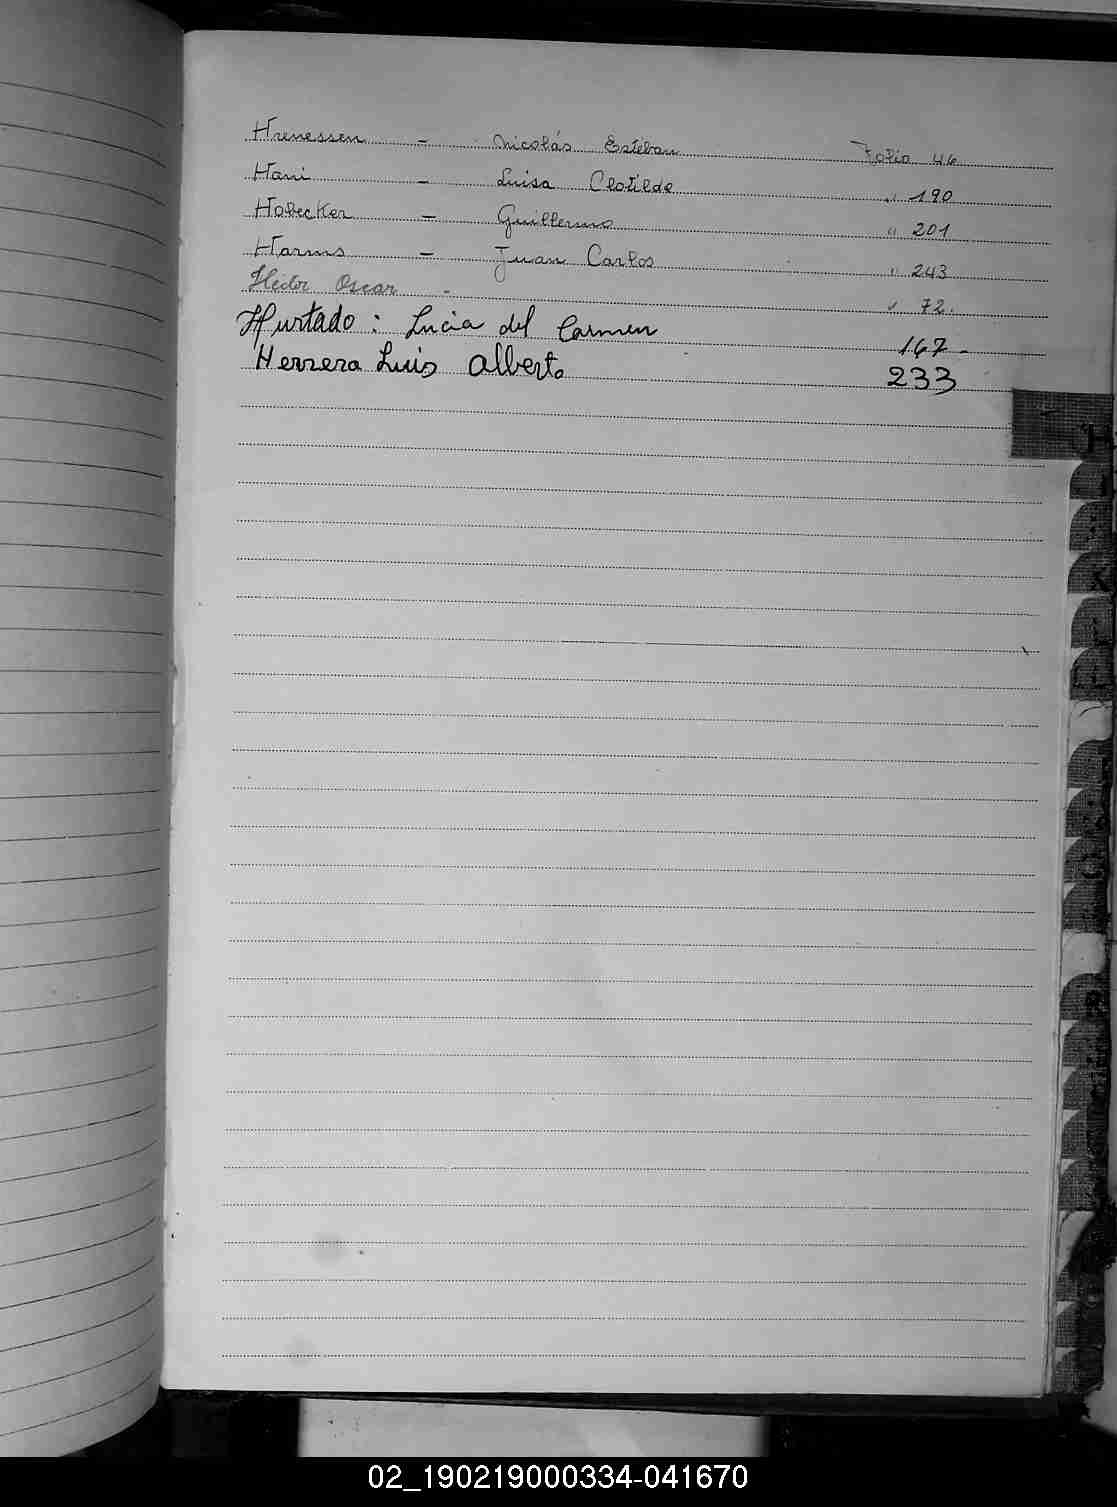 Hrenessen - Nicolás Estéban Folio 46
Hani - Luisa Clotilde " 190
Hobecker - Guillermo " 201
Harms - Juan Carlos " 243
Héctor Oscar - " 72.
Hurtado : Lucia del Carmen 167-
Herrera Luis Alberto 233
H
02_190219000334-041670